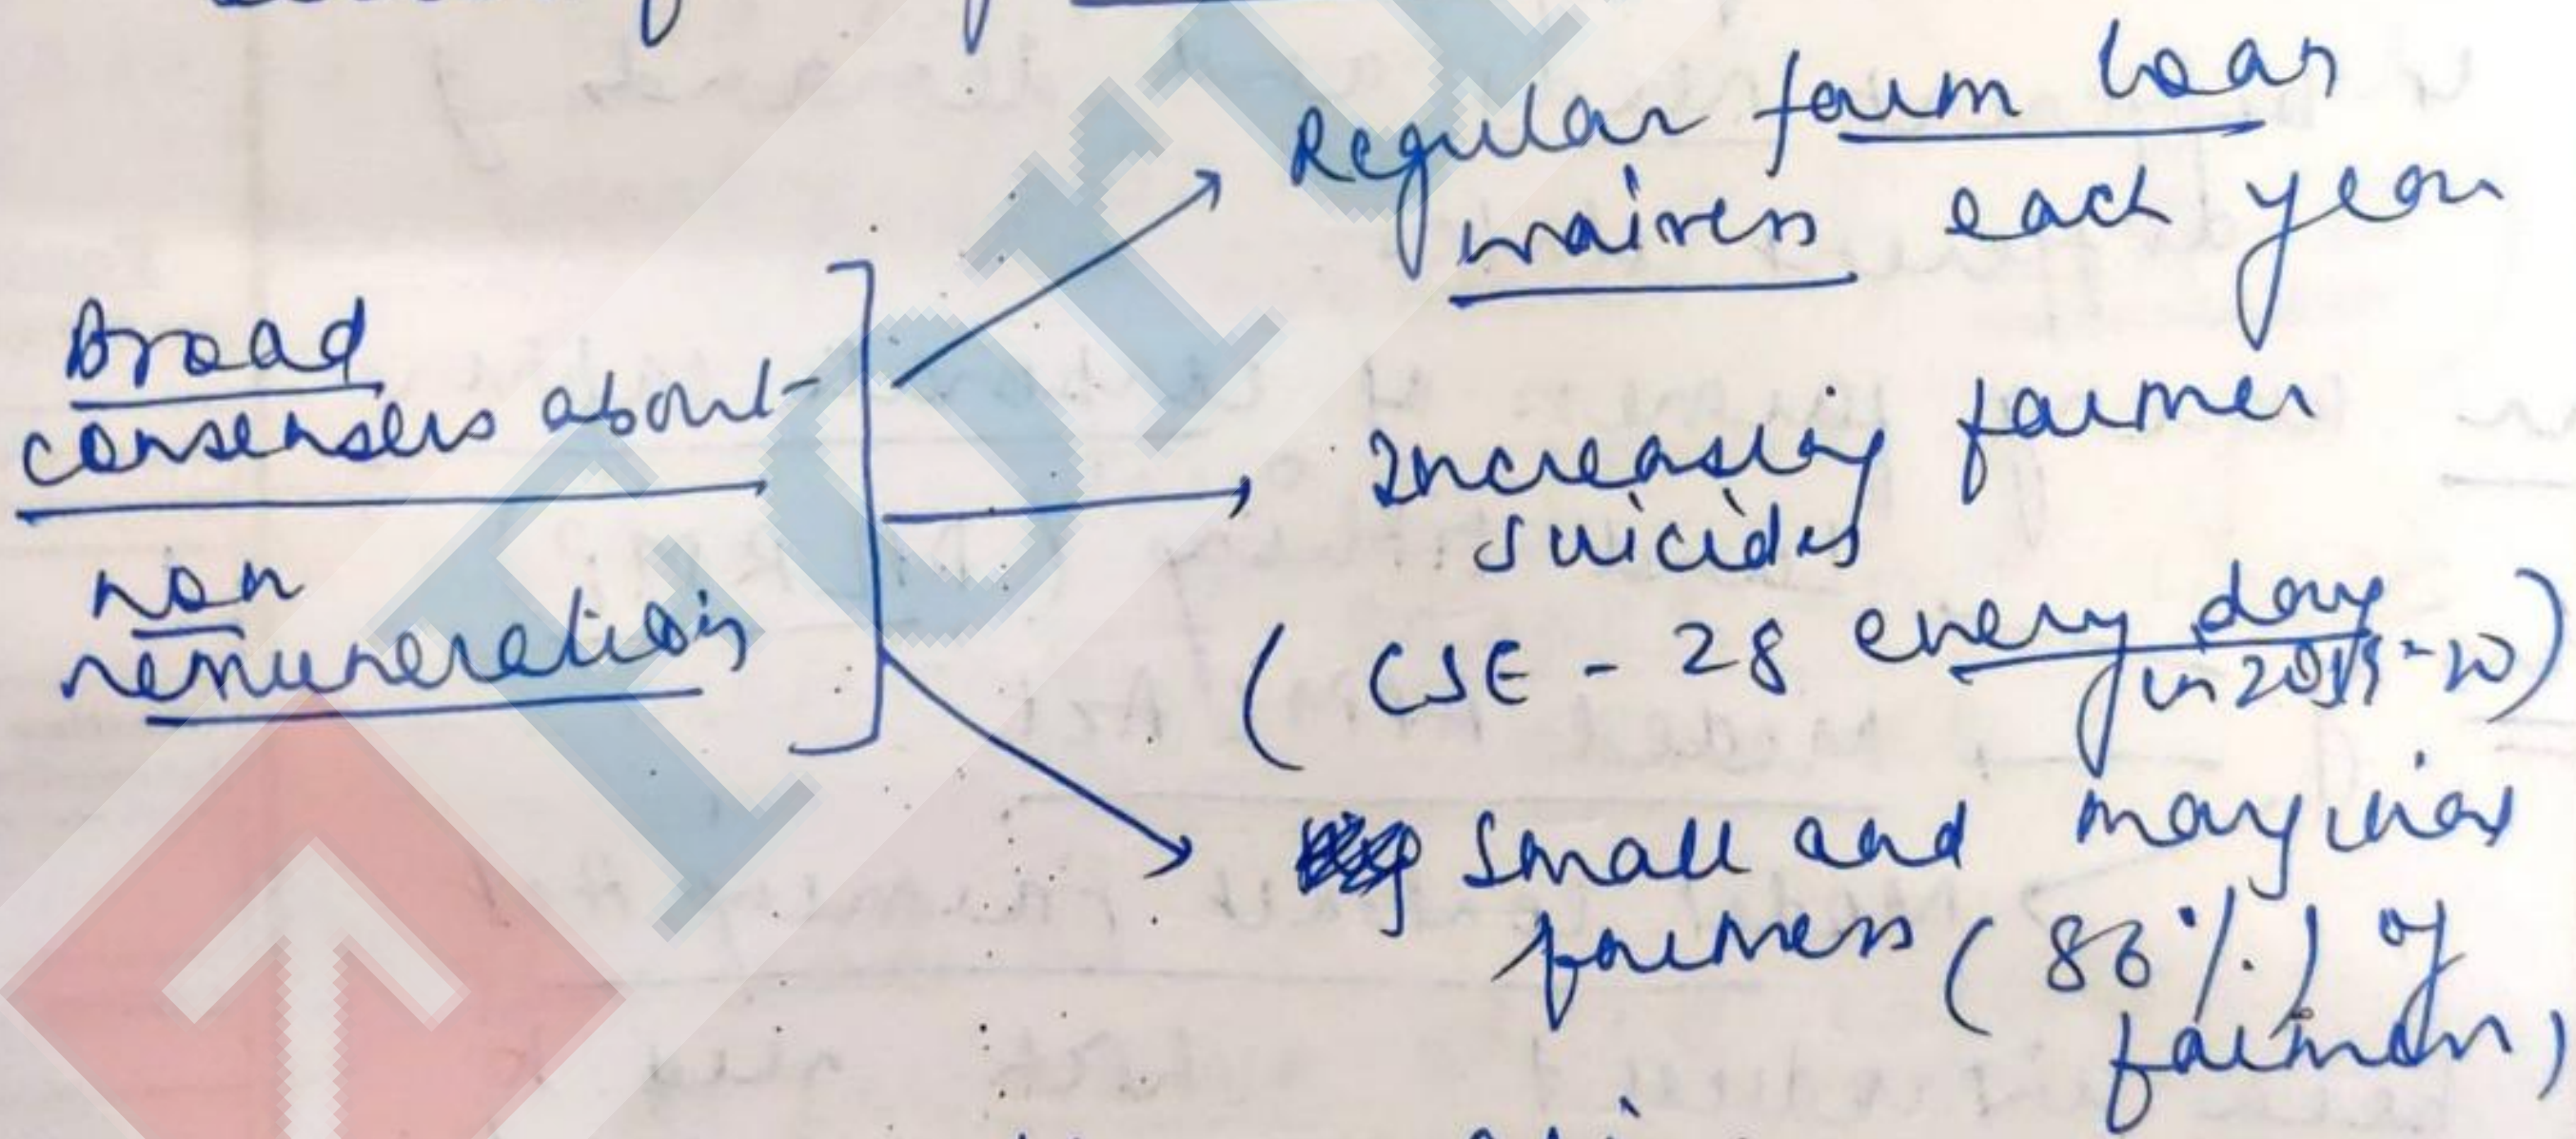 Broad
consensus about
non
remuneration
Regular farm loan
waivers each year
Increasing farmer
suicides
(CSE - 28 every day
in 2019-20)
Small and marginal
farmers (86%) of
farmers)
Foru